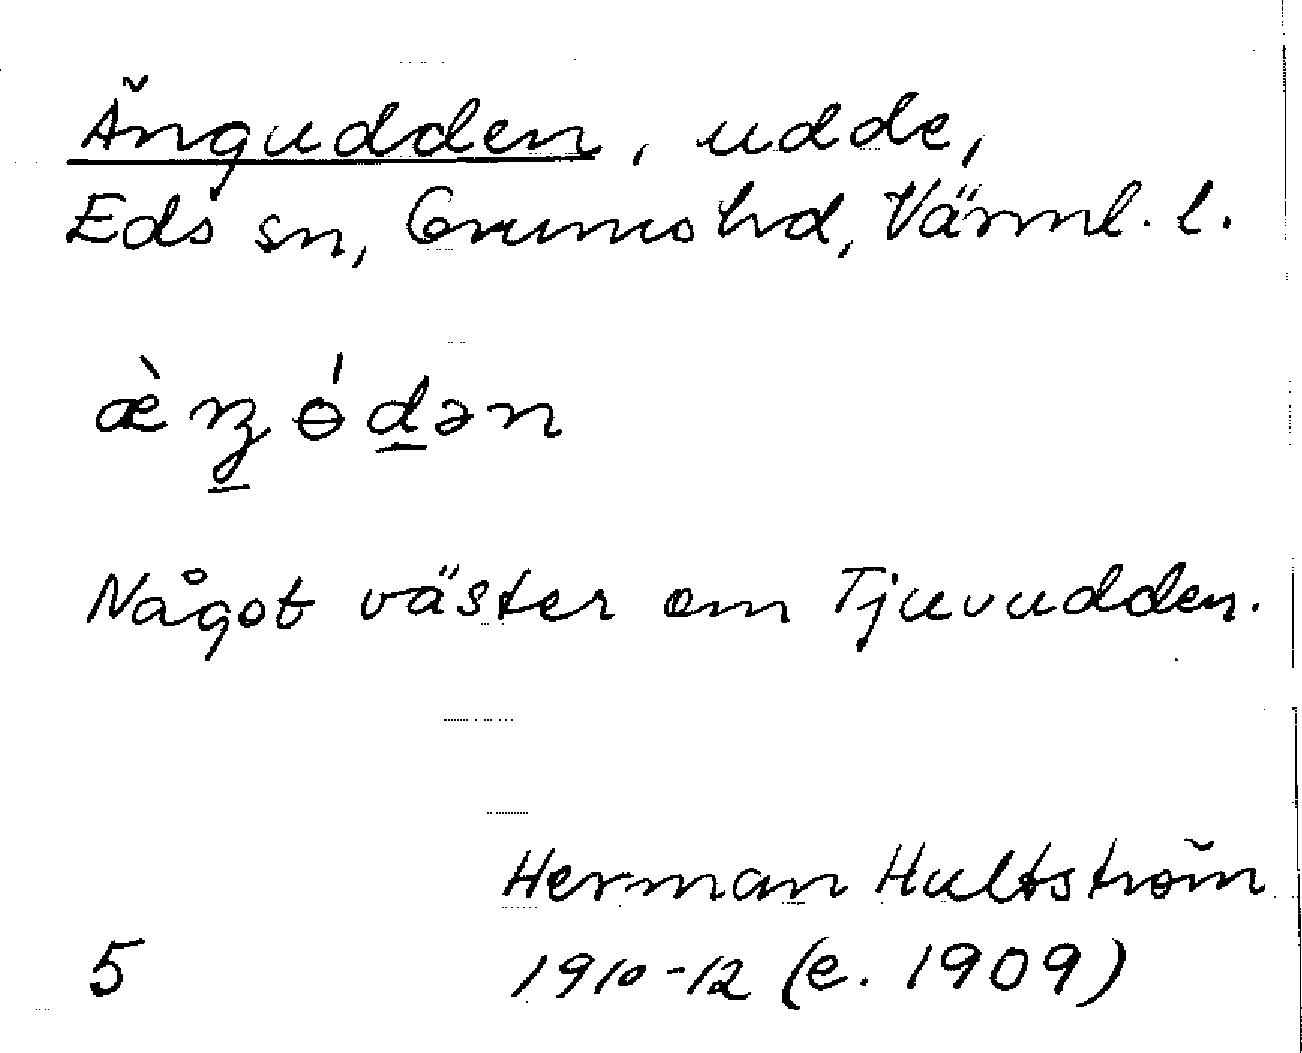 Ängudden, udde,
Eds sn, Grums hd, Värml. l.
æ̀ŋɵ́d̲ən
Något väster om Tjuvudden.
Herman Hultström
5 1910-12 (e. 1909)